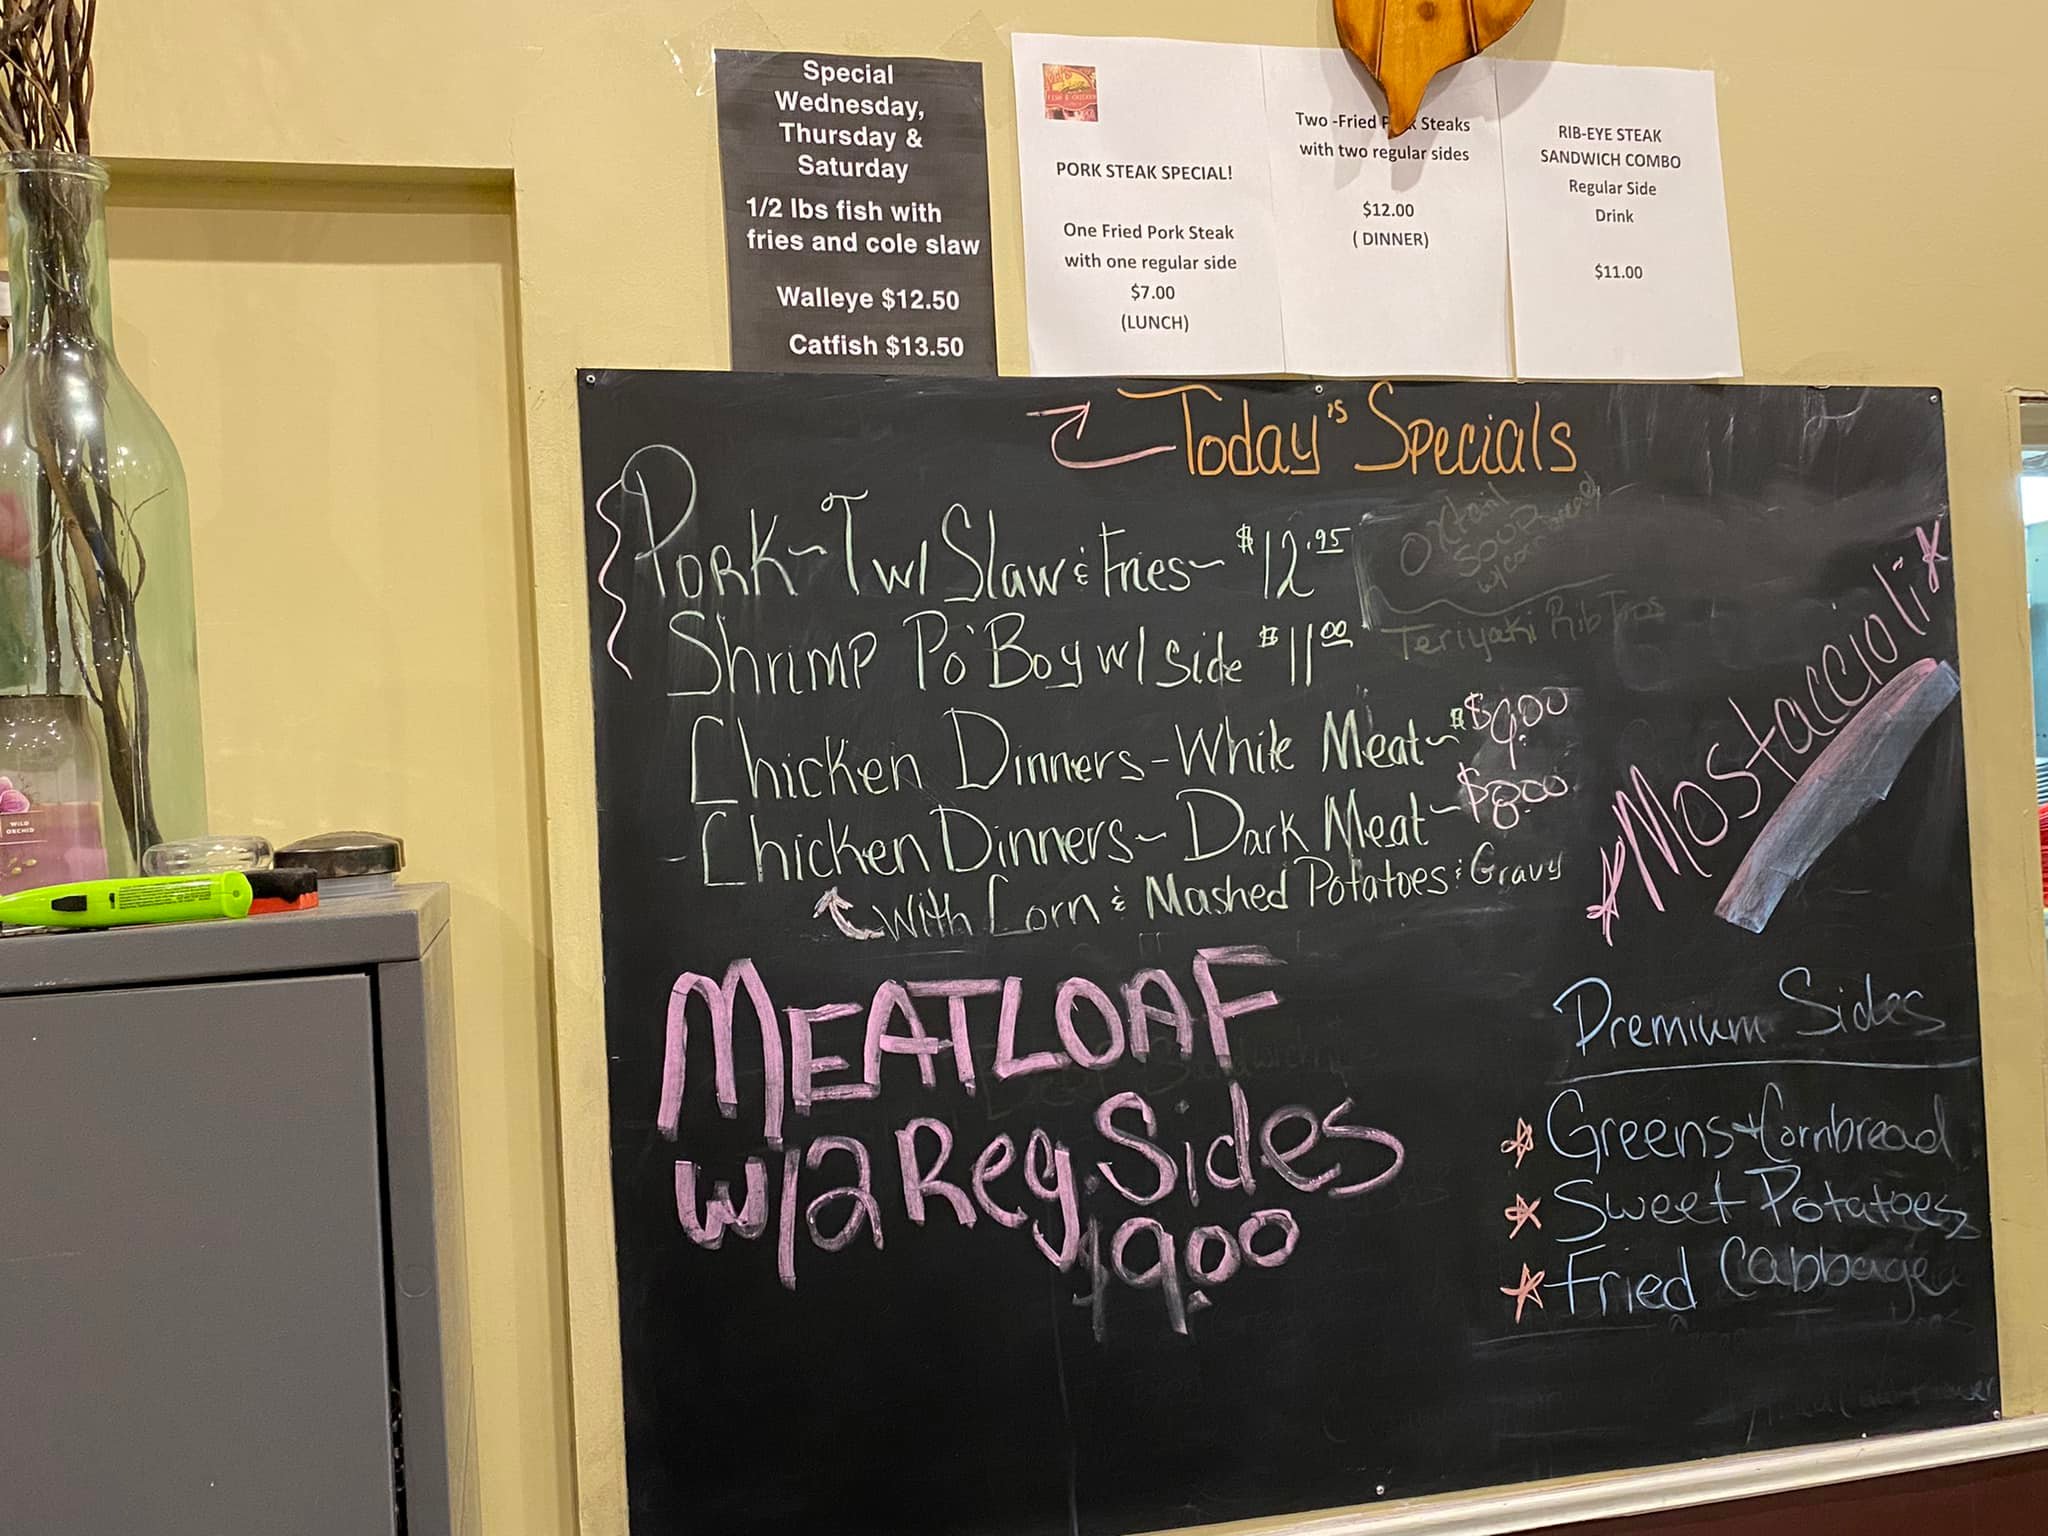 Special
Wednesday,
Thursday &
Saturday
1/2 lbs fish with
fries and cole slaw
Walleye $12.50
Catfish $13.50
FISH & CHICKEN
PORK STEAK SPECIAL!
One Fried Pork Steak
with one regular side
$7.00
(LUNCH)
Two -Fried Steaks
with two regular sides
$12.00
( DINNER)
RIB-EYE STEAK
SANDWICH COMBO
Regular Side
Drink
$11.00
Today's Specials
Pork~T w/ Slaw & Fries~ $12.95
Shrimp Po'Boy w/ Side $11.00
Chicken Dinners - White Meat~ $9.00
Chicken Dinners~ Dark Meat~ $8.00
With Corn & Mashed Potatoes & Gravy
MEATLOAF
w/2 Reg. Sides
$9.00
Oxtail
Soup
w/ corn bread
Teriyaki Rib
Mostaccioli
Premium Sides
Greens + Cornbread
Sweet Potatoes
Fried Cabbage
WILD
ORCHID